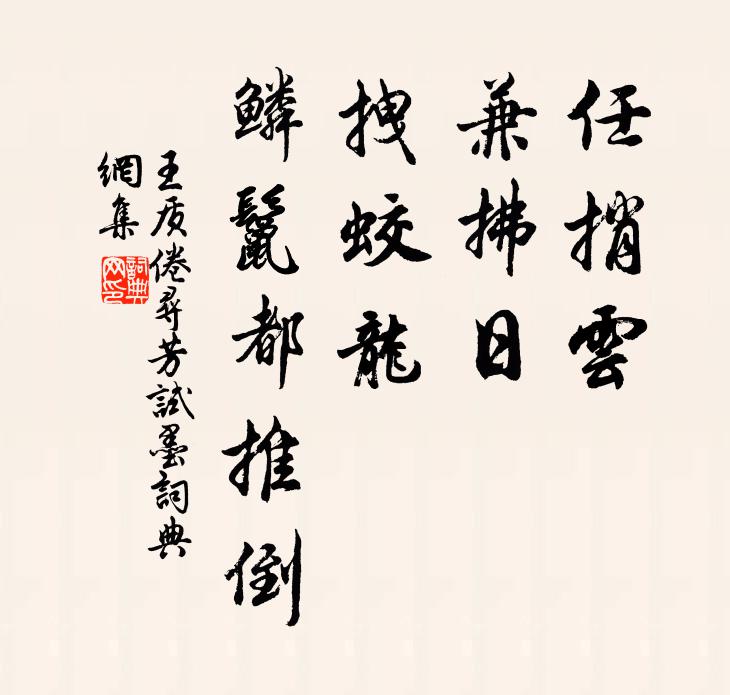 任捎雲
兼拂日
拽蛟龍
鱗鬣都推倒
王质倦尋芳試墨詞典
網集
詞典
网印